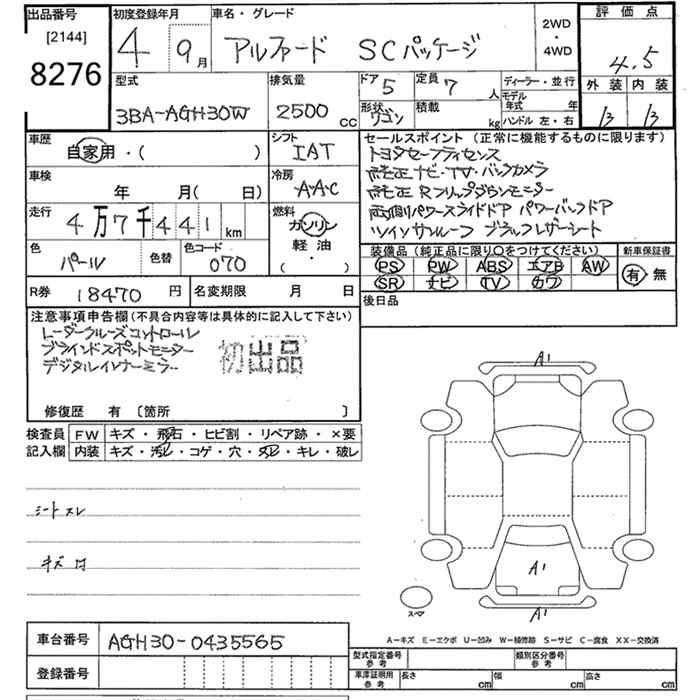 出品番号 初度登録年月 車名・グレード 2WD・4WD 評価点
[2144]
8276 4 9月 アルファード SCパッケージ 4.5
型式 排気量 ドア 5 定員 7人 ディーラー・並行 外装 内装
3BA-AGH30W 2500cc 形状 ワゴン 積載 kg モデル年式 年 B B
ハンドル 左・右
車歴 シフト セールスポイント(正常に機能するものに限ります)
自家用・( ) IAT トヨタセーフティセンス
車検 年 月( 日) 冷房 AAC 純正ナビ・TV・バックカメラ
純正Rフリップダウンモニター
走行 4万7千441km 燃料 ガソリン 軽油 ・( ) 両側パワースライドドア パワーバックドア
ツインサンルーフ ブラックレザーシート
色 パール 色替 色コード 070 装備品(純正品に限り○をつけてください) 新車保証書
PS PW ABS エアB AW 有・無
SR ナビ TV カワ
R券 18470円 名変期限 月 日 後日品
注意事項申告欄(不具合内容等は具体的に記入して下さい)
レーダークルーズコントロール
ブラインドスポットモニター 初出品
デジタルインナーミラー
修復歴 有 [箇所 ]
検査員 FW キズ・飛石・ヒビ割・リペア跡・×要
記入欄 内装 キズ・汚レ・コゲ・穴・スレ・キレ・破レ
シートスレ
キズ
A1
A1
A1
スペア
A-キズ E-エクボ U-凹み W-補修跡 S-サビ C-腐食 XX-交換済
車台番号 AGH30-0435565
登録番号
型式指定番号 参考 類別区分番号 参考
車庫証明用 参考 長さ cm 幅 cm 高さ cm